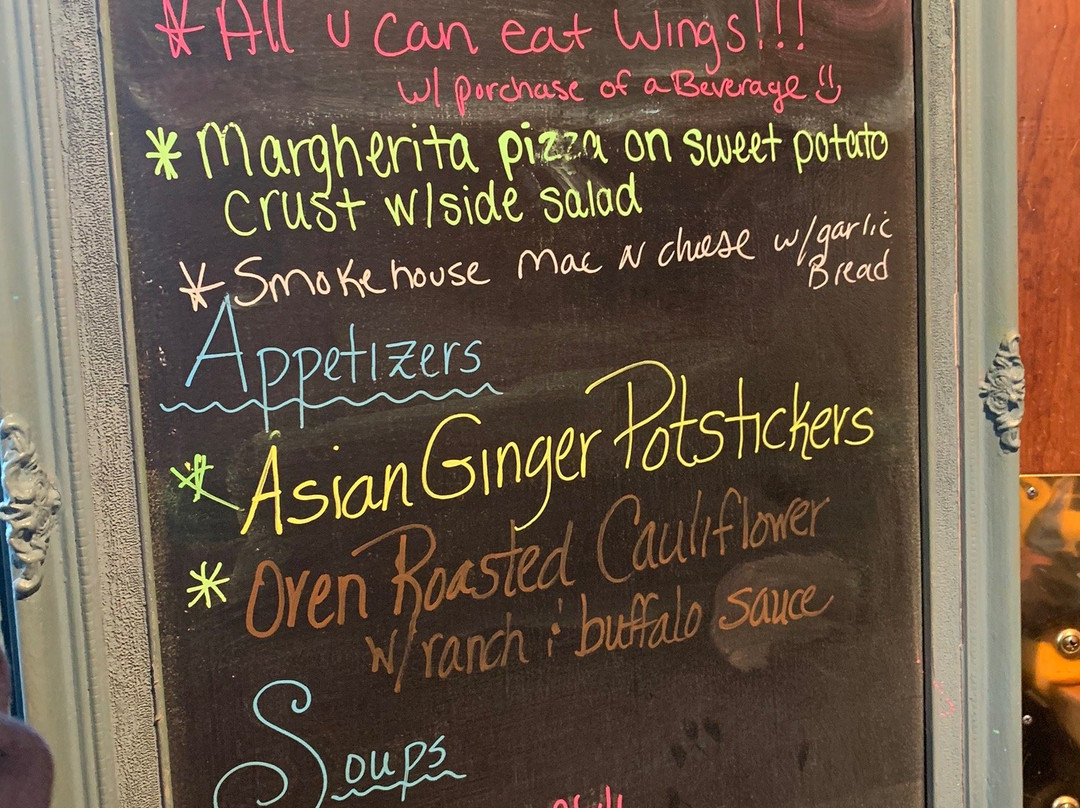 * All u can eat Wings!!!
w/ porchase of a Beverage
* Margherita pizza on sweet potato
crust w/side salad
* Smokehouse Mac N cheese w/garlic
Bread
Appetizers
* Asian Ginger Potstickers
* Oven Roasted Cauliflower
w/ranch & buffalo sauce
Soups